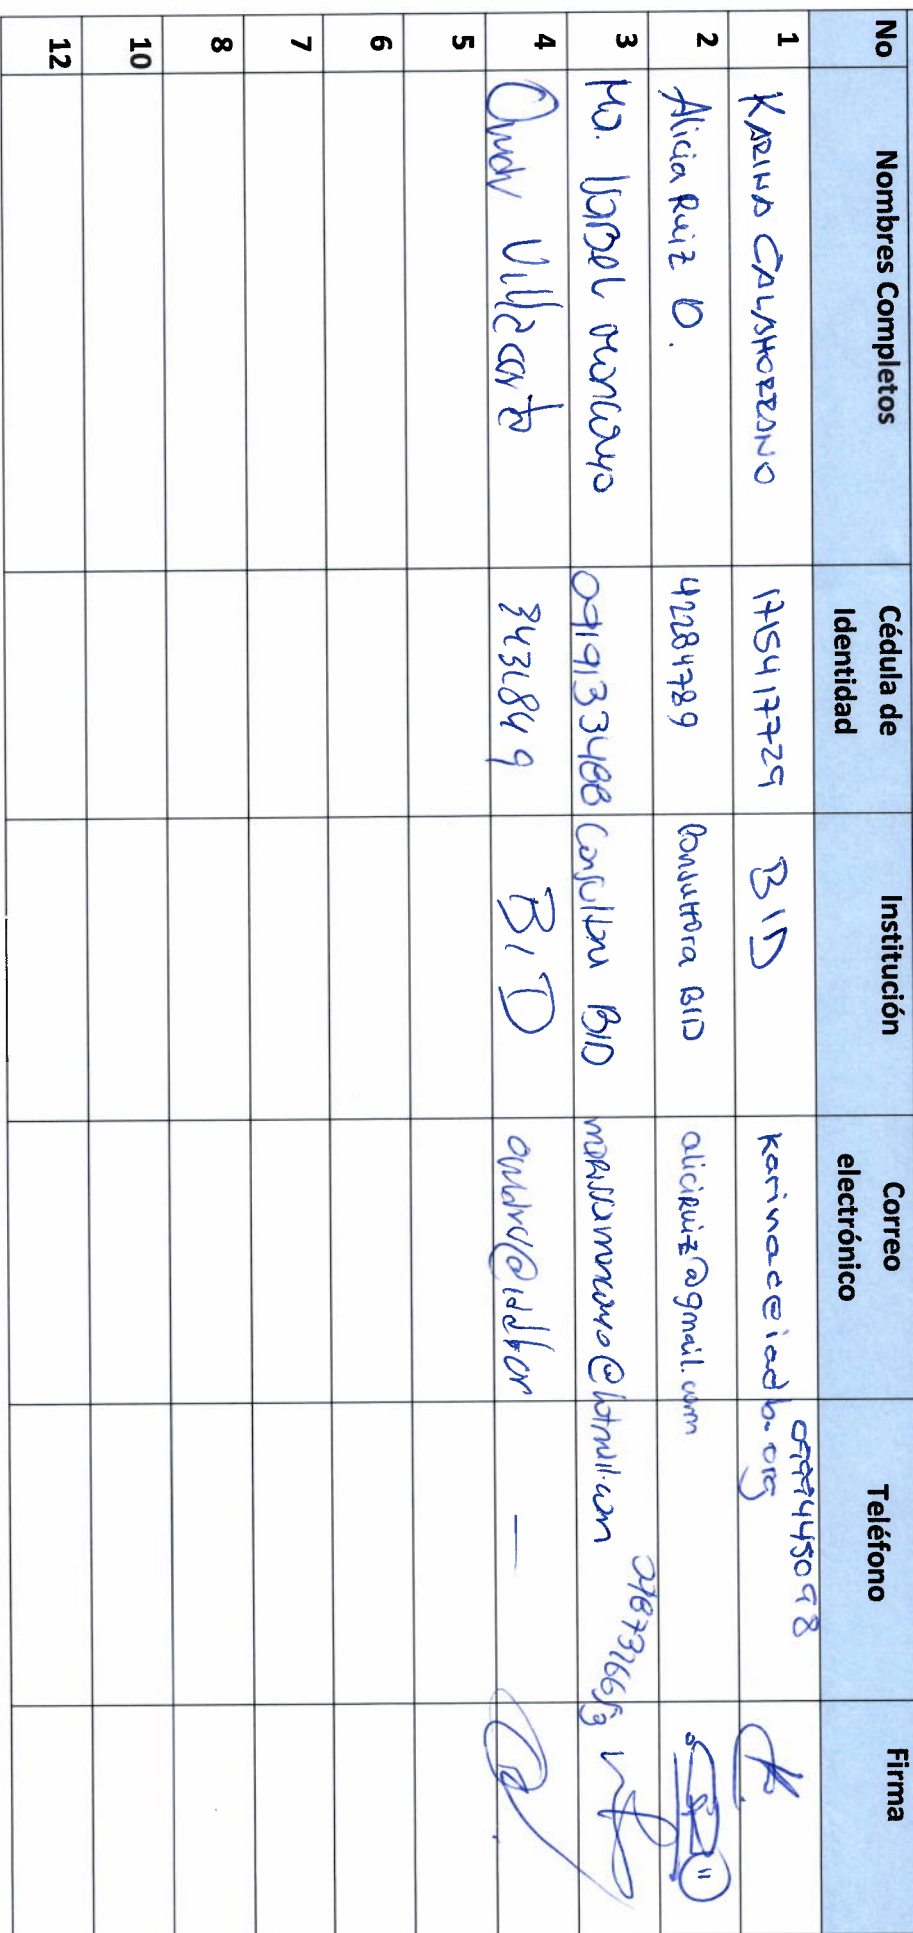 No Nombres Completos Cédula de Identidad Institución Correo electrónico Teléfono Firma
1 KARINA CALAHORRANO 1715417729 BID karinac@iadb.org 0999445098
2 Alicia Ruiz O. 42284789 Consultora BID aliciruiz@gmail.com
3 Ma. Isabel Moncayo 0919133488 Consultora BID @hotmail.com
4 Villacorta BID —
5
6
7
8
10
12